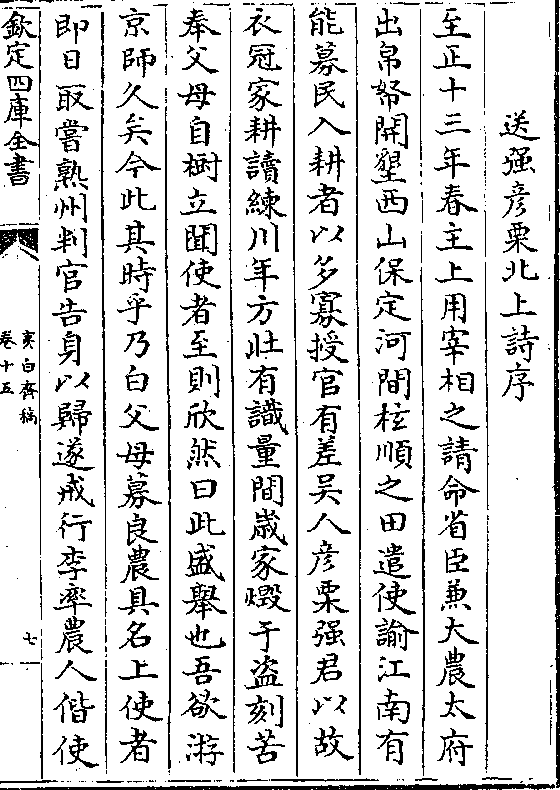 送强彦栗北上詩序
至正十三年春主上用宰相之請命省臣兼大農太府
出帛帑開墾西山保定河間檀順之田遣使諭江南有
能募民入耕者以多寡授官有差吳人彦栗强君以故
衣冠家耕讀練川年方壯有識量間嵗家燬于盗刻苦
奉父母自樹立聞使者至則欣然曰此盛舉也吾欲游
京師久矣今此其時乎乃白父母募良農具名上使者
即日㪅嘗熟州判官告身以歸遂戒行李率農人偕使
欽定四庫全書
夷白齋稿
卷十五
七